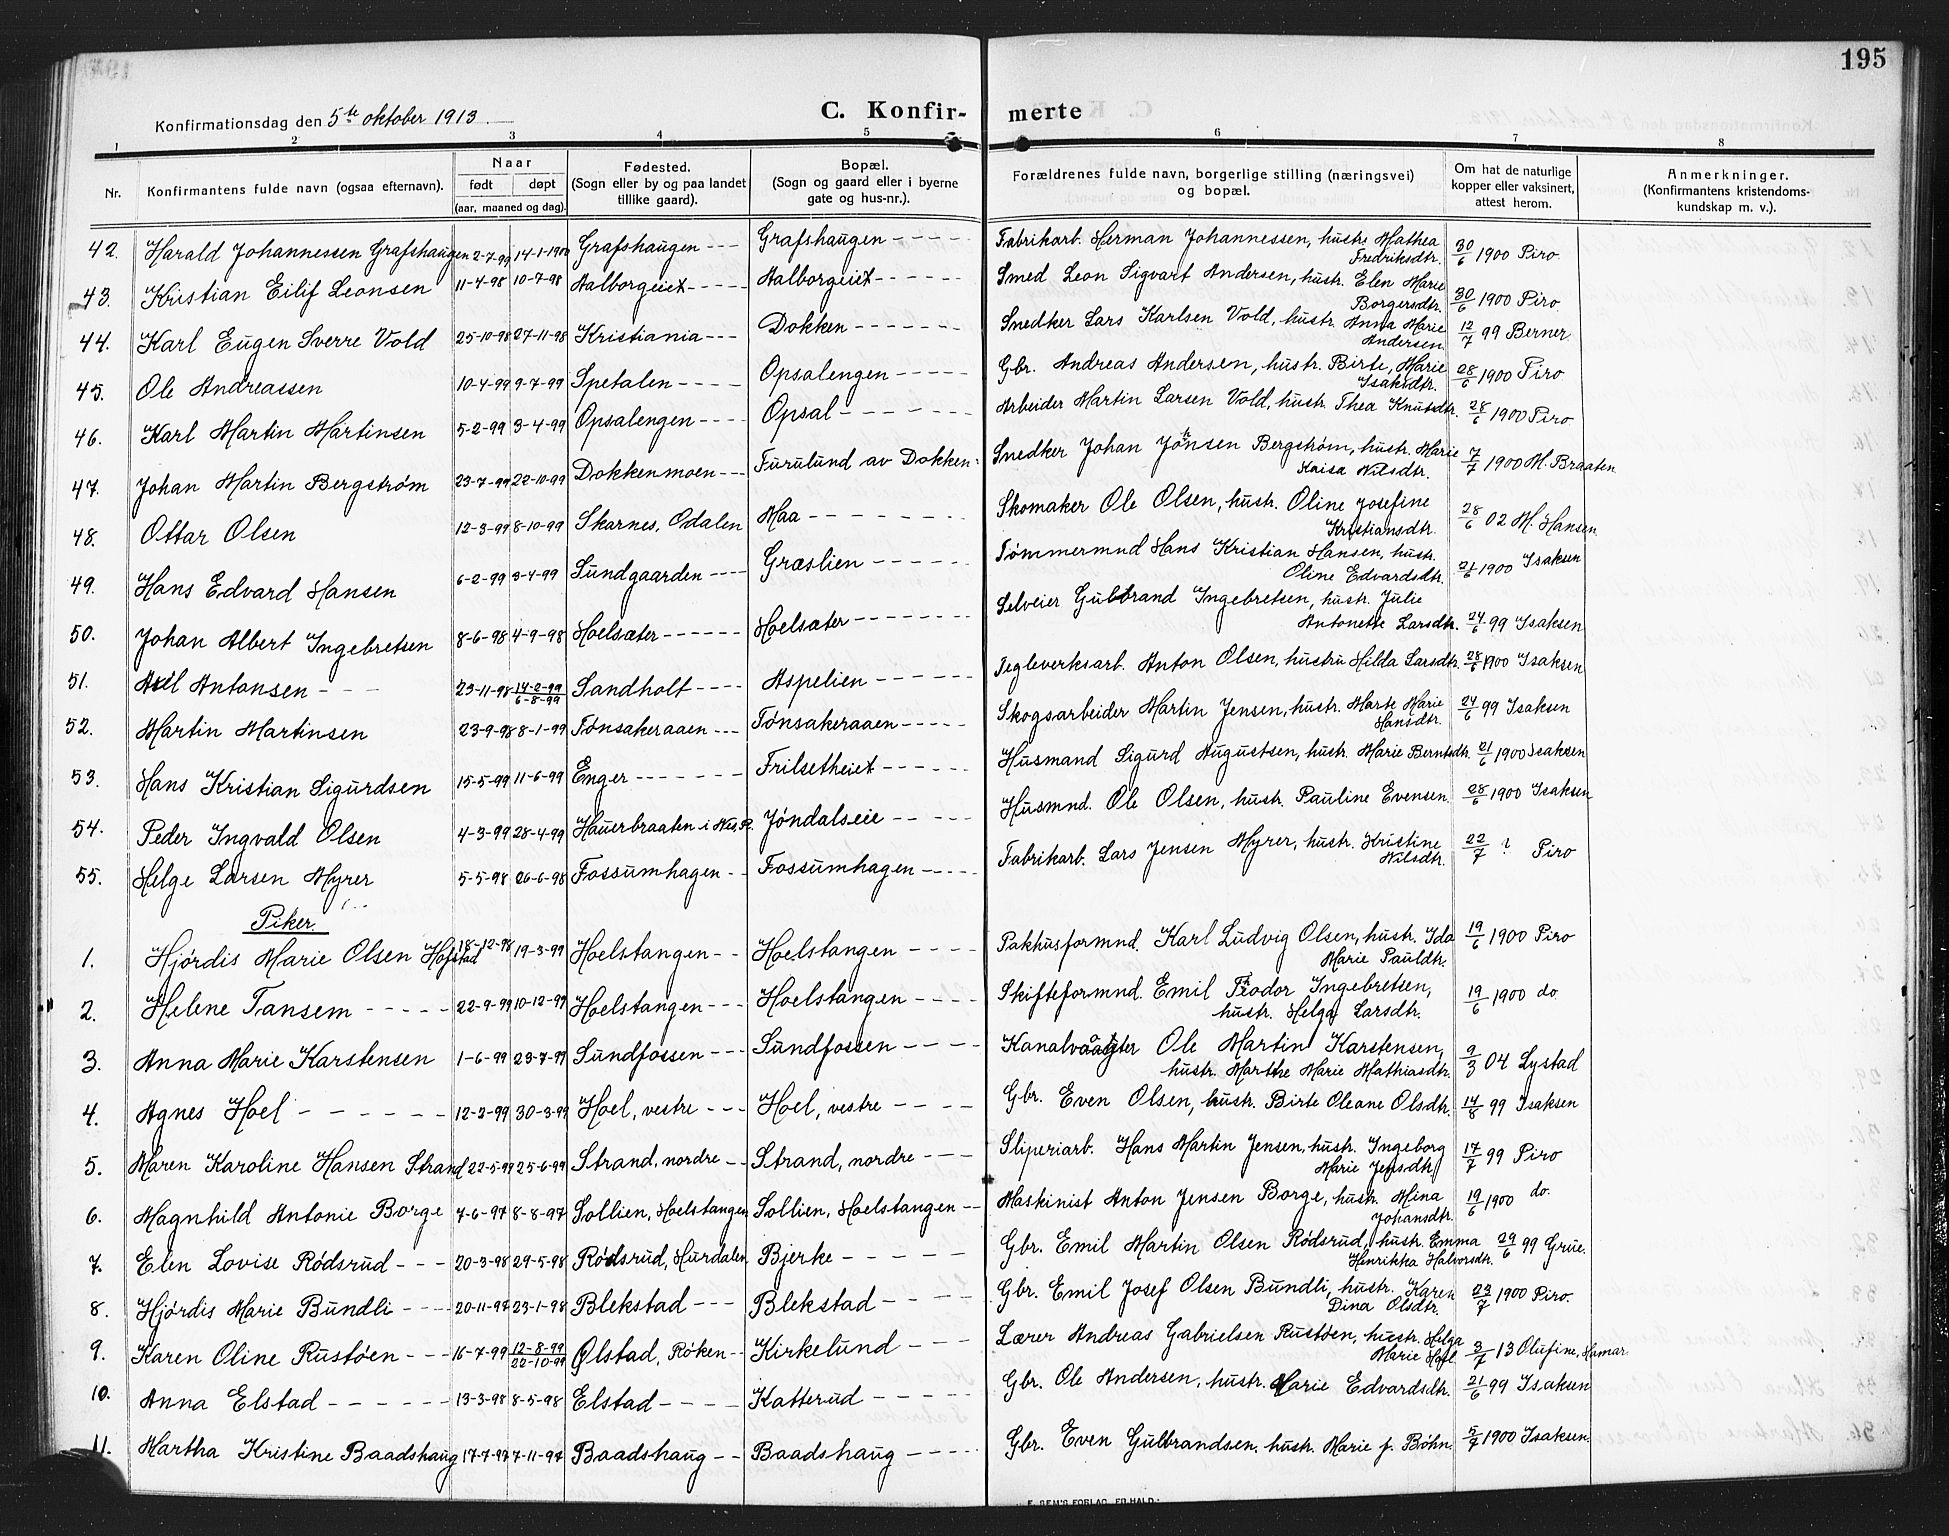 195
Konfirmationsdag den 5te oktober 1913.
C. Konfir- merte
1 2 3 4 5 6 7 8
Nr. Konfirmantens fulde navn (ogsaa efternavn). Naar født døpt (aar, maaned og dag). Fødested. (Sogn eller by og paa landet tillike gaard). Bopæl. (Sogn og gaard eller i byerne gate og hus-nr.). Forældrenes fulde navn, borgerlige stilling (næringsvei) og bopæl. Om hat de naturlige kopper eller vaksinert, attest herom. Anmerkninger. (Konfirmantens kristendoms- kundskap m. v.).
42. Harald Johannessen Grafshaugen 2-7-99 14-1-1900 Grafshaugen --- Grafshaugen ---- Fabrikarb. Herman Johannessen, hustr. Mathea Fredriksdtr. 30/6 1900 Piro
43. Kristian Eilif Leonsen 11-4-98 10-7-98 Aalborgeiet ---- Aalborgeiet ---- Smed Leon Sigvart Andersen, hustr. Elen Marie Borgersdtr. 30/6 1900 Piro
44. Karl Eugen Sverre Vold 25-10-98 27-11-98 Kristiania --- Dokken ----- Snedker Lars Karlsen Vold, hustr. Anna Marie Andersen 12/7 99 Berner
45. Ole Andreassen 10-4-99 9-7-99 Spetalen ---- Opsalengen ---- Gbr. Andreas Andersen, hustr. Birte, Marie Isaksdtr. 28/6 1900 Piro
46. Karl Martin Martinsen 5-2-99 3-4-99 Opsalengen --- Opsal ------ Arbeider Martin Larsen Vold, hustr. Thea Knutsdtr. 28/6 1900 Piro
47. Johan Martin Bergstrøm 23-7-99 22-10-99 Dokkenmoen --- Furulund av Dokken Snedker Johan Johnsen Bergstrøm, hustr. Marie Kaisa Nilsdtr. 7/7 1900 M. Braaten
48. Ottar Olsen 12-3-99 8-10-99 Skarnes, Odalen Maa ------ Skomaker Ole Olsen, hustr. Oline Josefine Kristiansdtr. 28/6 02 M. Hansen
49. Hans Edvard Hansen 6-2-99 3-4-99 Sundgaarden ---- Græslien ----- Tømmermnd Hans Kristian Hansen, hustr. Oline Edvardsdtr. 21/6 1900 Isaksen
50. Johan Albert Ingebretsen 8-6-98 4-9-98 Hoelsæter ----- Hoelsæter ------ Selveier Gulbrand Ingebretsen, hustr. Julie Antonette Larsdtr. 24/6 99 Isaksen
51. Axel Antonsen --- 23-11-98 14-2-99 6-8-99 Sandholt ---- Aspelien ----- Tegleverksarb. Anton Olsen, hustru Hilda Larsdtr. 28/6 1900 Isaksen
52. Martin Martinsen 23-9-98 8-1-99 Tønsakeraaen --- Tønsakeraaen ---- Skogsarbeider Martin Jensen, hustr. Marte Marie Hansdtr. 24/6 99 Isaksen
53. Hans Kristian Sigurdsen 15-5-99 11-6-99 Enger ------ Frilsetheiet ----- Husmand Sigurd Augustsen, hustr. Marie Berntsdtr. 21/6 1900 Isaksen
54. Peder Ingvald Olsen 4-3-99 28-4-99 Hauerbraaten i Nes, R. Jøndalseie ---- Husmnd. Ole Olsen, hustr. Pauline Evensen 28/6 1900 Isaksen
55. Helge Larsen Myrer 5-5-98 26-6-98 Fossumhagen -- Fossumhagen ---- Fabrikarb. Lars Jensen Myrer, hustr. Kristine Nilsdtr. 22/7 ? Piro
Piker.
1. Hjørdis Marie Olsen Hofstad 18-12-98 19-3-99 Hoelstangen -- Hoelstangen ---- Pakhusformnd. Karl Ludvig Olsen, hustr. Ida Marie Pauldtr. 19/6 1900 Piro
2. Helene Tansem ----- 22-9-99 10-12-99 Hoelstangen --- Hoelstangen ---- Skifteformnd. Emil Feodor Ingebretsen, hustr. Helga Larsdtr. 19/6 1900 do
3. Anna Marie Karstensen 1-6-99 23-7-99 Sundfossen --- Sundfossen ---- Kanalvogter Ole Martin Karstensen, hustr. Marthe Marie Mathiasdtr. 9/3 04 Lystad
4. Agnes Hoel ------ 12-2-99 30-3-99 Hoel, vestre --- Hoel, vestre ---- Gbr. Even Olsen, hustr. Birte Oleane Olsdtr. 14/8 99 Isaksen
5. Maren Karoline Hansen Strand 22-5-99 25-6-99 Strand, nordre -- Strand, nordre --- Sliperiarb. Hans Martin Jensen, hustr. Ingeborg Marie Jensdtr. 17/7 99 Piro
6. Magnhild Antonie Borge 7-6-97 8-8-97 Sollien, Hoelstangen Sollien, Hoelstangen -- Maskinist Anton Jensen Borge, hustr. Mina Johansdtr. 19/6 1900 do.
7. Elen Lovise Rødsrud --- 20-3-98 29-5-98 Rødsrud, Hurdalen Bjerke ----- Gbr. Emil Martin Olsen Rødsrud, hustr. Emma Henrikka Halvorsdtr. 29/6 99 Grue.
8. Hjørdis Marie Bundli ---- 20-11-97 23-1-98 Blekstad --- Blekstad ---- Gbr. Emil Josef Olsen Bundli, hustr. Karen Dina Olsdtr. 23/7 1900 Piro.
9. Karen Oline Rustøen --- 16-7-99 12-8-99 22-10-99 Ølstad, Røken -- Kirkelund --- Lærer Andreas Gabrielsen Rustøen, hustr. Helga Marie Hofl. 3/7 13 Olufine, Hamar
10. Anna Elstad ------ 13-3-98 8-5-98 Elstad ---- Katterud ---- Gbr. Ole Andersen, hustr. Marie Edvardsdtr. 21/6 99 Isaksen
11. Martha Kristine Baadshaug 17-7-97 7-11-97 Baadshaug -- Baadshaug ---- Gbr. Even Gulbrandsen, hustr. Marie f. Bøhn. 5/7 1900 Isaksen.
E. SEM'S FORLAG, FR.HALD.